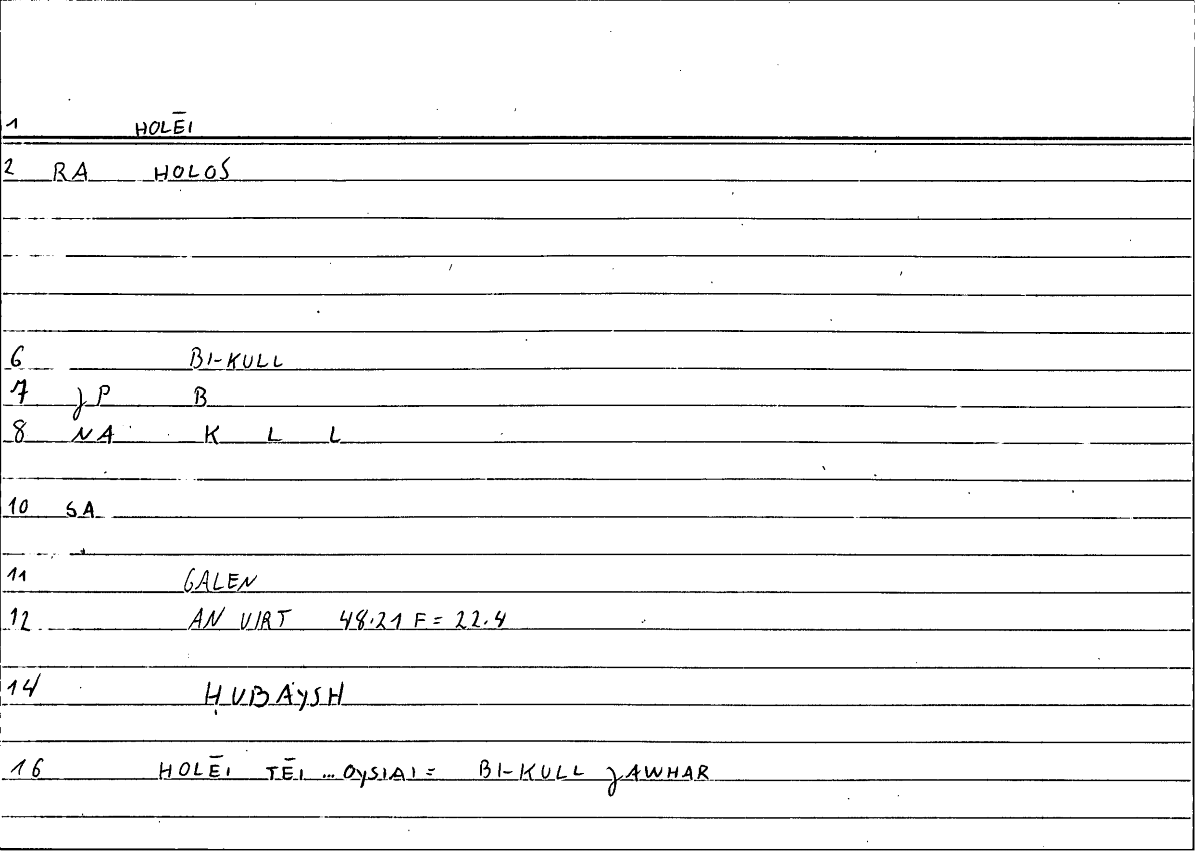 1 HOLĒI
2 RA HOLOS
6 BI-KULL
7 JP B
8 NA K L L
10 SA
11 GALEN
12 AN VIRT 48.21 F = 22.4
14 ḤUBAYSH
16 HOLĒI TĒI ... OYSIAI = BI-KULL JAWHAR